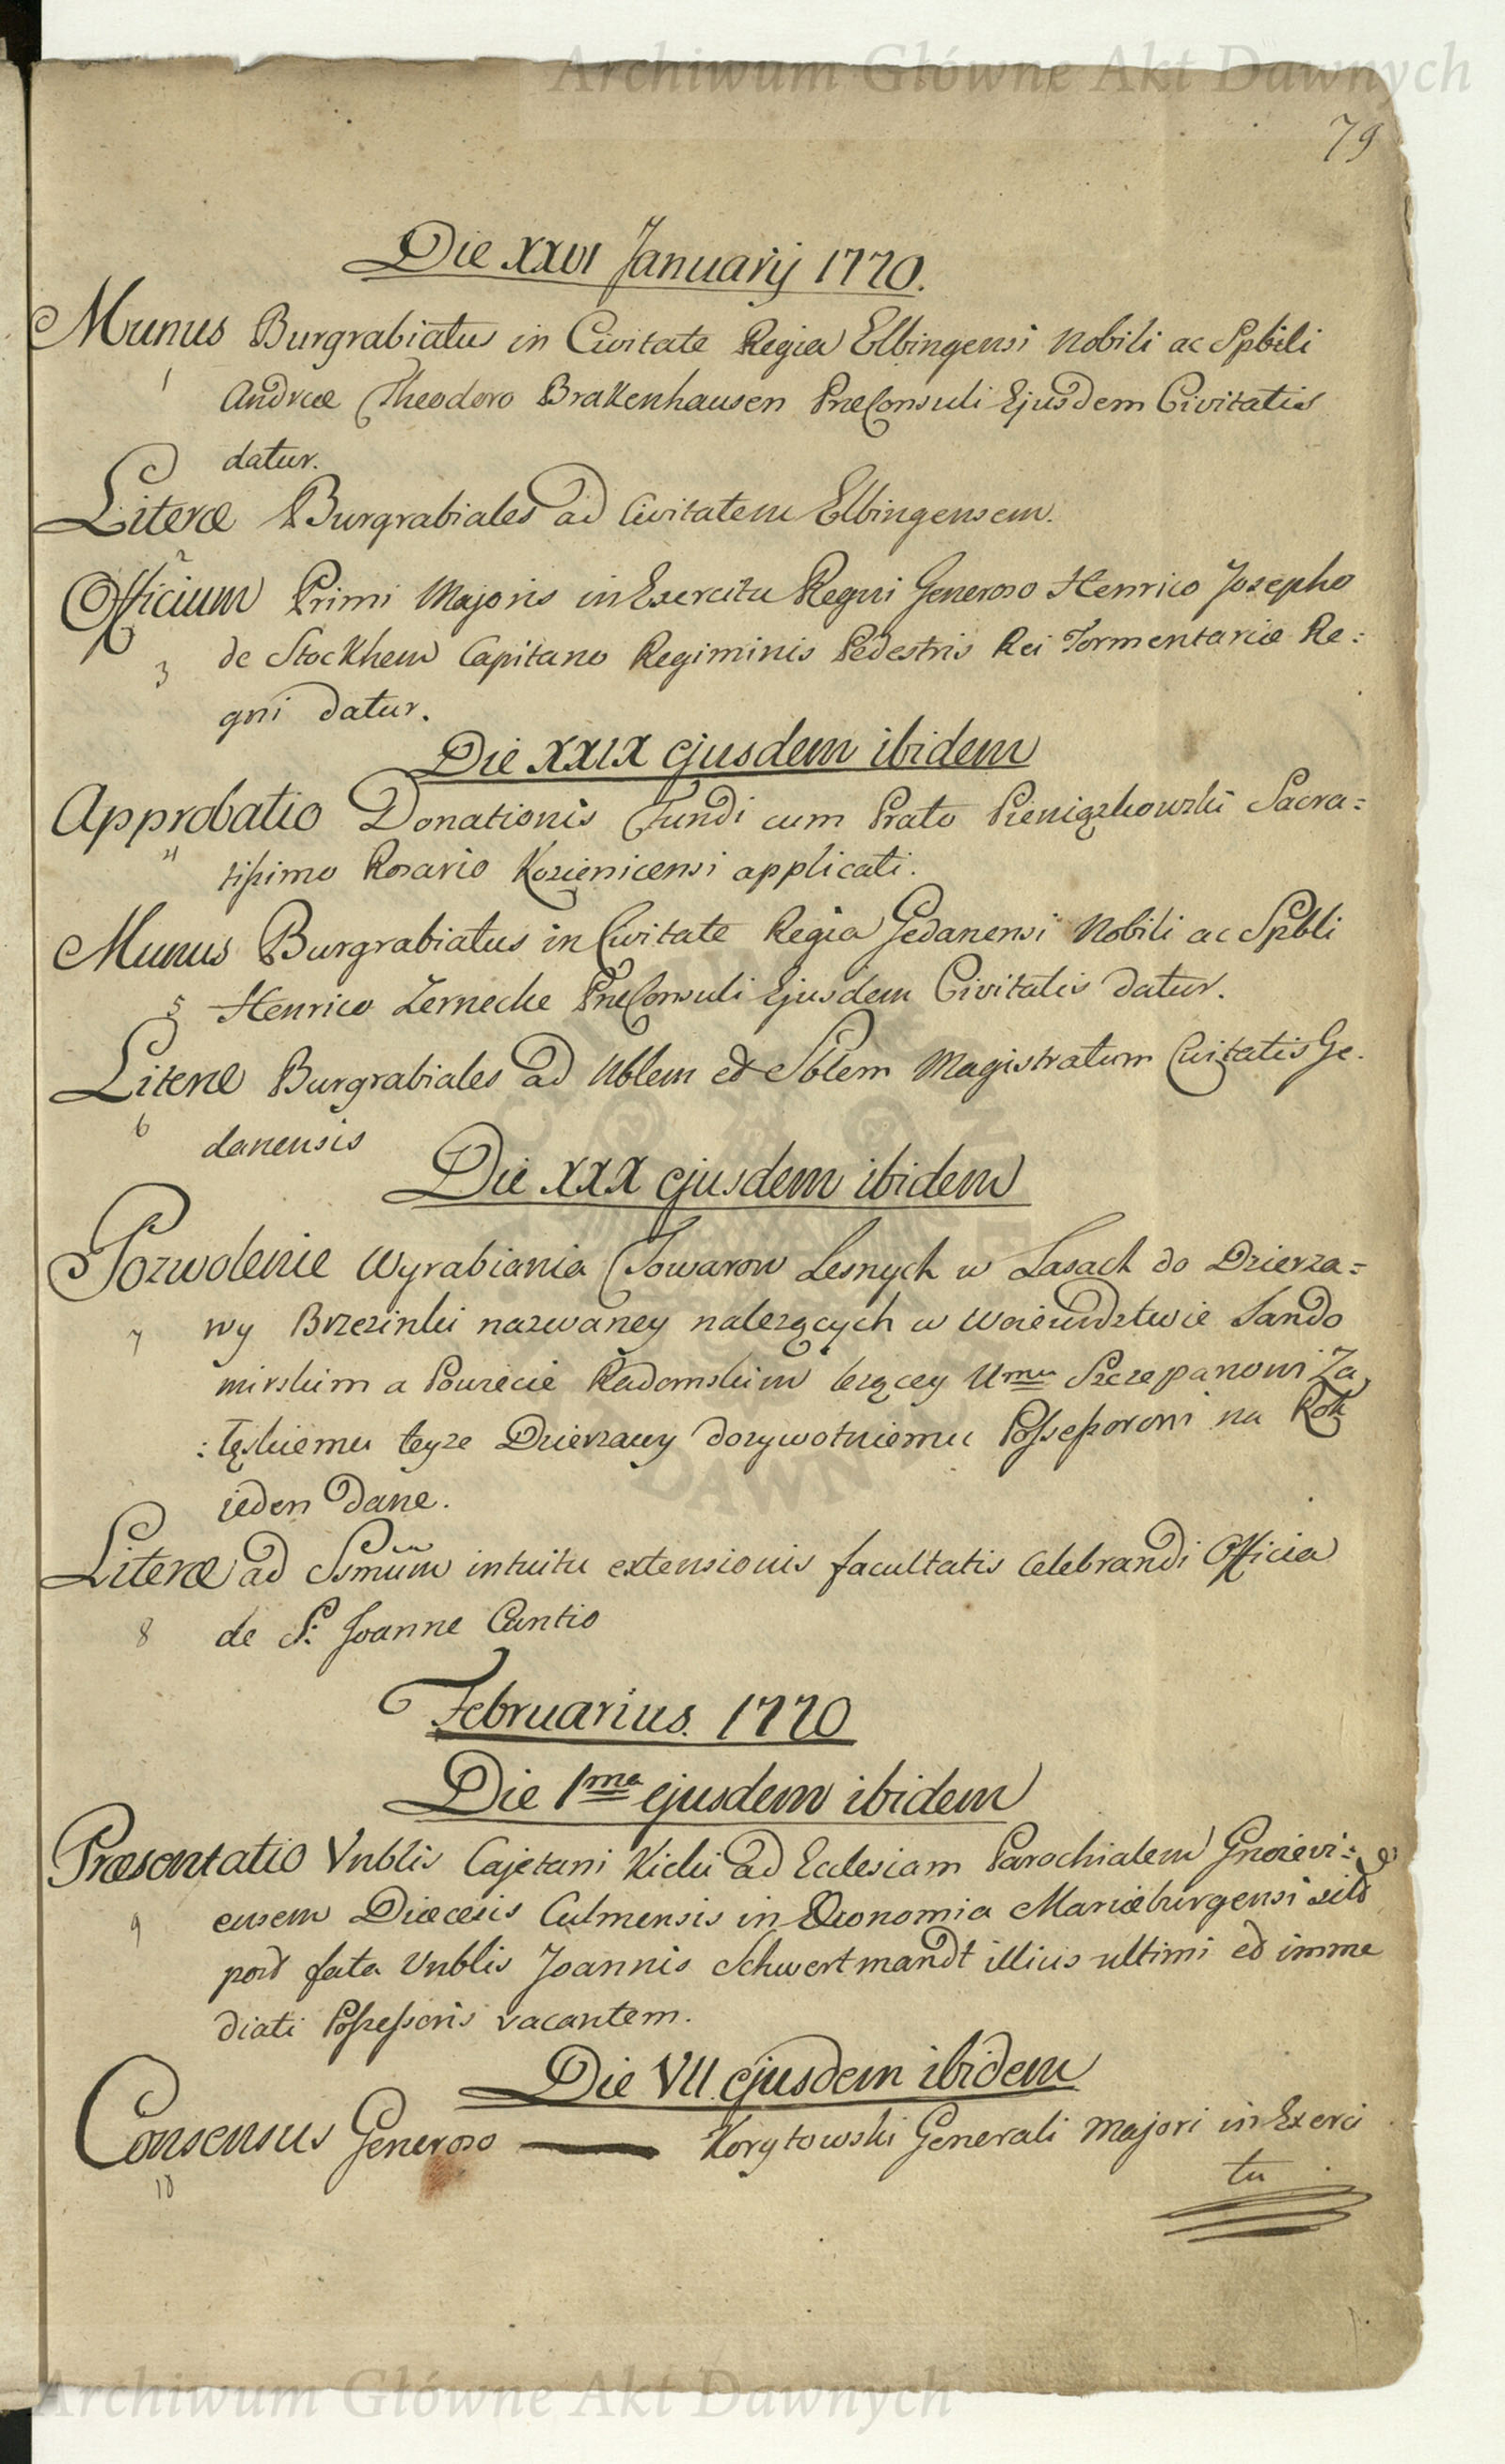 Archiwum Główne Akt Dawnych
79
Die XXVI Januarij 1770.
Munus Burgrabiatus in Civitate Regia Elbingensi Nobili ac Spbili
1 Andreæ Theodoro Brakenhausen PræConsuli Ejusdem Civitatis
datur.
Literæ Burgrabiales ad Civitatem Elbingensem.
2
Officium Primi Majoris in Exercitu Regni Generoso Henrico Josepho
3 de Stockhem Capitano Regiminis Pedestris Rei Tormentariæ Re:
gni datur.
Die XXIX ejusdem ibidem
Approbatio Donationis Fundi cum Prato Pieniązkowski Sacra=
4 tissimo Rosario Kozienicensi applicati.
Munus Burgrabiatus in Civitate Regia Gedanensi Nobili ac Spbli
5 Henrico Zernecke PræConsuli Ejusdem Civitatis datur.
Literæ Burgrabiales ad Nblem et Sblem Magistratum Civitatis Ge.
6 danensis
Die XXX ejusdem ibidem
Pozwolenie Wyrabiania Towarow Lesnych w Lasach do Dzierza=
7 wy Brzezinki nazwaney nalezących w Woiewdztwie Sando
mirskim a Powiecie Radomskim lezącey Umu Szczepanowi Za,
:łęskiemu teyze Dzierzawy dozywotniemu Possessorowi na Rok
ieden dane.
Literæ ad Ssmum intuitu extensionis facultatis Celebrandi Officia
8 de S: Joanne Cantio
Februarius. 1770
Die 1ma ejusdem ibidem
Præsentatio Vnblis Cajetani Kicki ad Ecclesiam Parochialem Gnoievi:
9 ensem Diæcesis Culmensis in Œconomia Mariæburgensi sitã
post fata Vnblis Joannis Schwertmandt illius ultimi et imme
diati Possessoris vacantem.
Die VII ejusdem ibidem
Consensus Generoso — Korytowski Generali Majori in Exerci
10 tu
Archiwum Główne Akt Dawnych